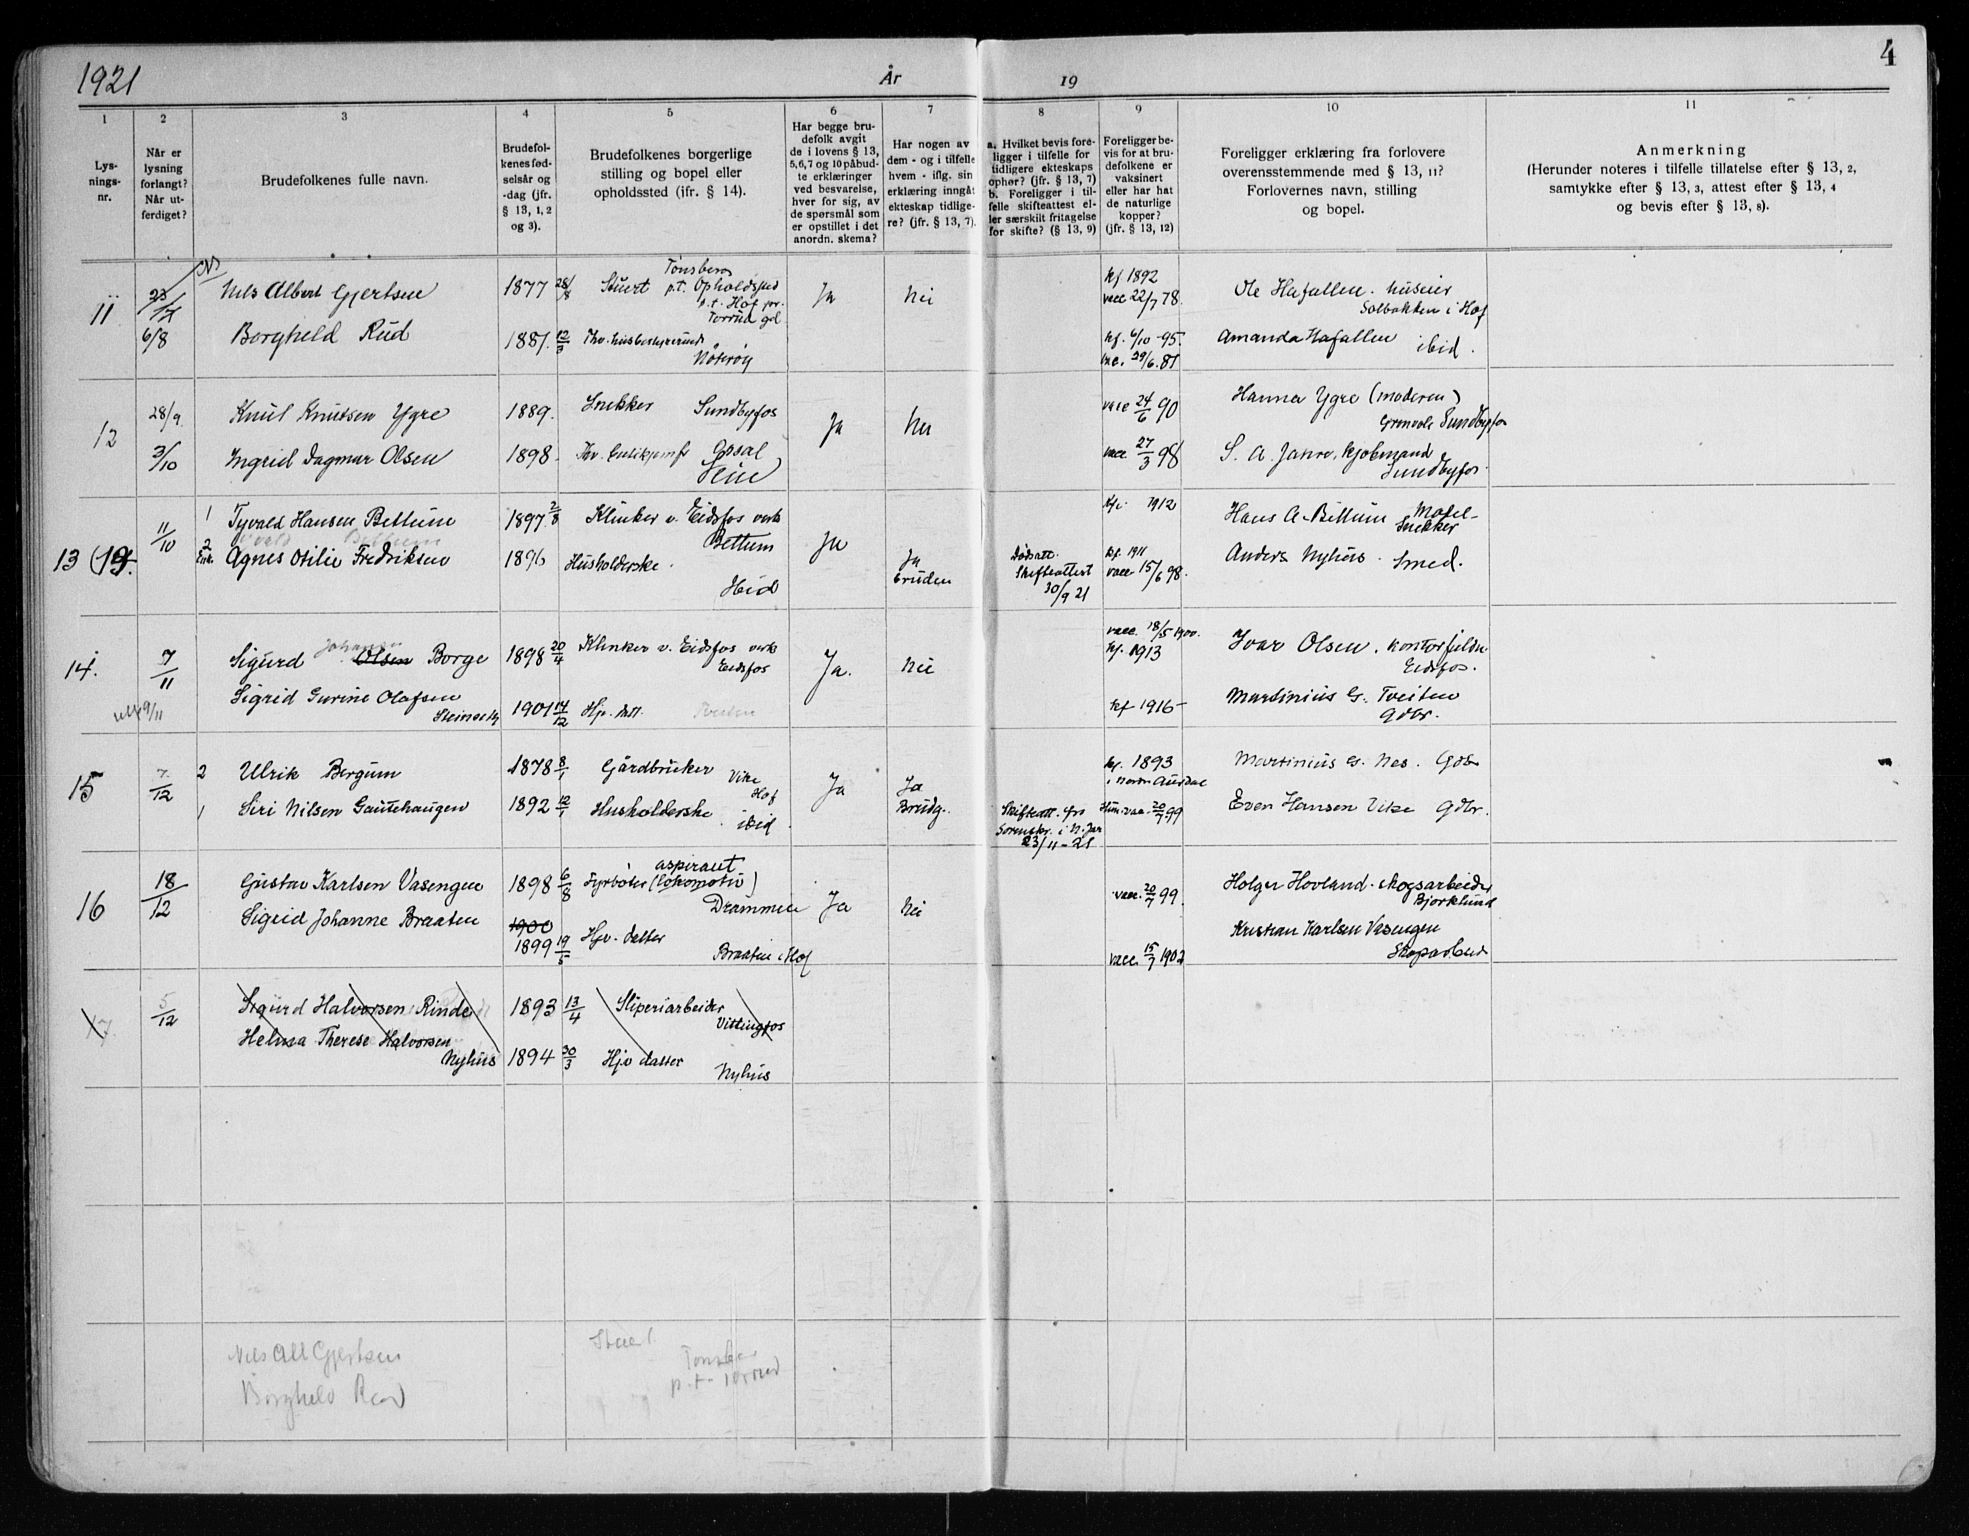 1921
År
19
4
1
2
3
4
5
6
7
8
9
10
11
Lys-
nings-
nr.
Når er
lysning
forlangt?
Når ut-
ferdiget?
Brudefolkenes fulle navn.
Brudefol-
kenes fød-
selsår og
-dag (jfr.
§ 13, 1, 2
og 3).
Brudefolkenes borgerlige
stilling og bopel eller
opholdssted (ifr. § 14).
Har begge bru-
defolk avgit
de i lovens § 13,
5,6,7 og 10 påbud-
te erklæringer
ved besvarelse,
hver for sig, av
de spørsmål som
er opstillet i det
anordn. skema?
Har nogen av
dem - og i tilfelle
hvem - iflg. sin
erklæring inngåt
ekteskap tidlige-
re? (jfr. § 13, 7).
a. Hvilket bevis fore-
ligger i tilfelle for
tidligere ekteskaps
ophør? (jfr. § 13, 7)
b. Foreligger i til-
felle skifteattest el-
ler særskilt fritagelse
for skifte? (§ 13, 9)
Foreligger be-
vis for at bru-
defolkene er
vaksinert
eller har hat
de naturlige
kopper?
(jfr. § 13, 12)
Foreligger erklæring fra forlovere
overensstemmende med § 13, 11?
Forlovernes navn, stilling
og bopel.
Anmerkning
(Herunder noteres i tilfelle tillatelse efter § 13, 2,
samtykke efter § 13, 3, attest efter § 13, 4
og bevis efter § 13, 8).
11
6/8
Nils Albert Gjertsen
1877 28/8
Stuert
Tønsberg
p.t. Hof pr.
Ja
Nei
kf 1892
vacc 22/7 78.
Ole Hafallen
Solbakken i Hof
Borghild Rud
1881. 12/3
Nøterøy
kf. 6/10 -95.
vac. 29/6.81
Amanda Hafallen ibid.
12
28/9
3/10
Knut Knutsen Ygre
1889.
Snekker Sundbyfos
Ja
Nei
vacc 24/6 90
Hanna Ygre (moderen)
Sundbyfos
Ingrid Dagmar Olsen
1898.
vacc. 27/3 98
S. A. kjøbmand
Sundbyfos.
13 (19.
11/10
1 Tyvald Hansen Bettum
1897. 2/8
Klinker v. Eidsfos verk
Bettum
Ja
1912
Hans A. Bettum Model-
snekker
2
Enk. Agnes Otilie Fredriksen
1896
Husholderske.
Ibid
Ja
bruden
Dødsatt.
Skifteattest
30/9 21
kf. 1911
vacc 15/6 98.
Anders Nyhus. Smed.
14.
7/11
9/11
Sigurd Johansen Olsen Borge
1898 20/4
Klinker v. Eidsfos verk
Eidsfos
Ja.
Nei
vacc. 18/5 1900.
kf. 1913
Ivar Olsen.
Eidsfos.
Sigrid Gurine Olafsen
1901 14/12
Hjv. datt.
kf 1916
Martinius G. Tveiten
Gdbr.
15
7/12
2 Ulrik Bergum
1878 8/1
Gårdbruker Vike
Hof
Ja
Ja
Brudg.
kf. 1893
Martinius G. Nes. Gdb
1 Siri Nilsen Gautehaugen
1892 12/1
Husholderske. ibid.
Skifteatt. fra
Sorenskr. i N. Jar
23/11 - 21
vac. 20/7 99
Even Hansen Vike Gdbr.
16
18/12
Gustav Karlsen Vasengen
1898 6/8
aspirant
Fyrbøter (Lokomotiv)
Drammen
Ja
Nei
vacc. 20/7 99.
Holger Hovland. skogsarbeider
Bjorklund
Sigrid Johanne Braaten
1900
1899 19/5
Hjv. datter
Braaten i Hof
vacc. 15/7 1902
Kristian Karlsen Vasengen
Skogarbeid
17.
5/12
Sigurd Halvorsen Rinde
1893 13/4
Sliperiarbeider
Vittingfos
Helma Therese Halvorsen
Nyhus
1894 30/3
Hjv datter
Nyhus
Nils Alb Gjertsen
Borghild Rud
p.t.